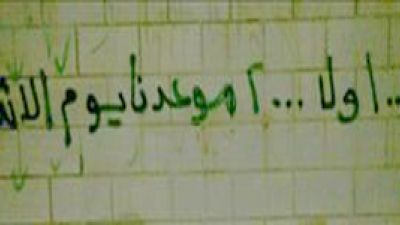 ..اولا ...٢ موعدنا يوم الاث